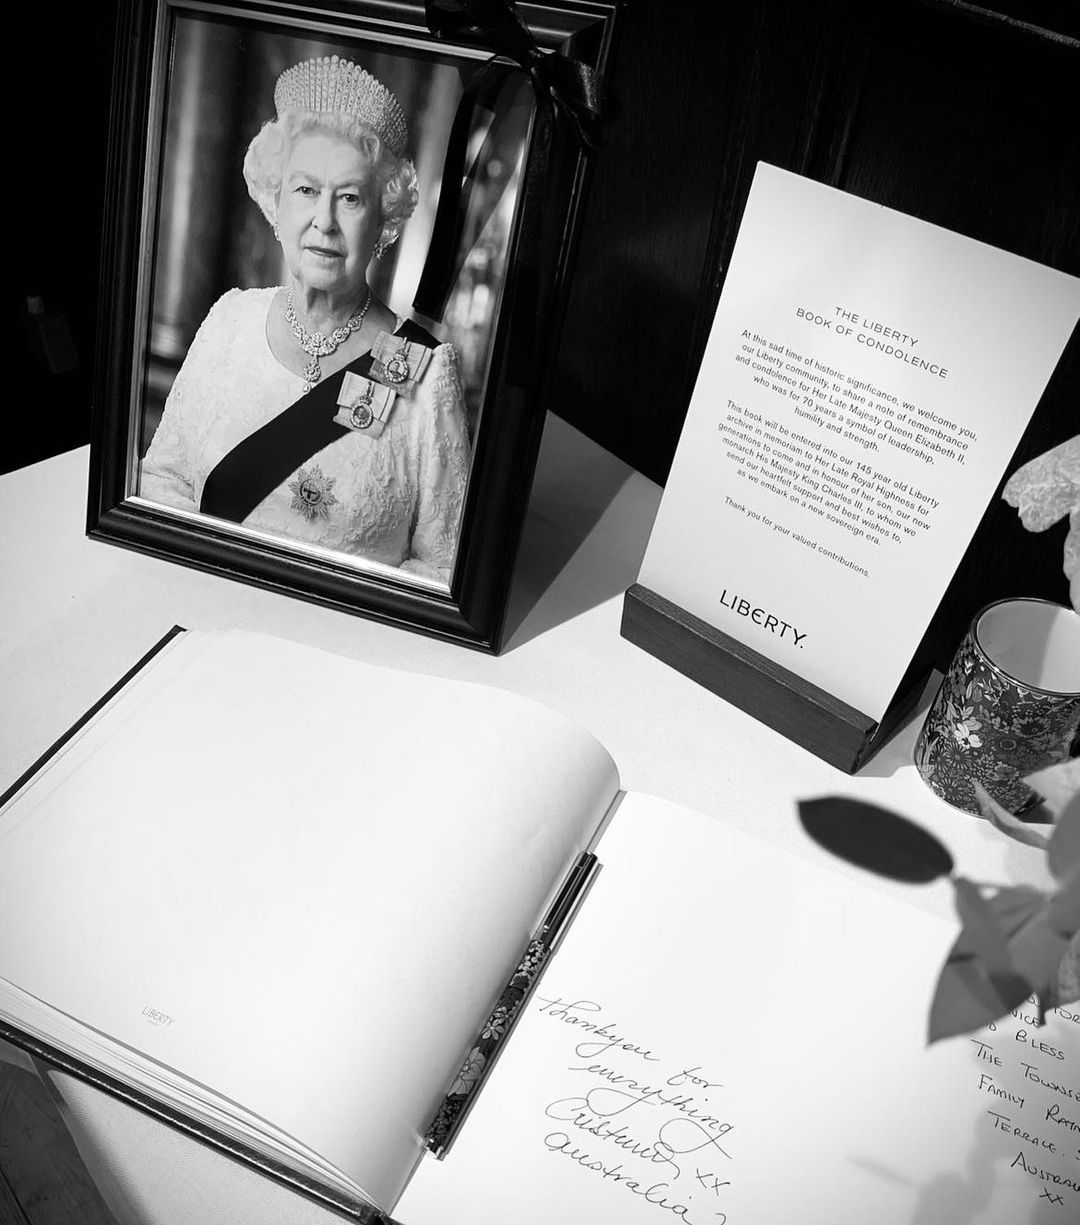 THE LIBERTY
BOOK OF CONDOLENCE
At this sad time of historic significance, we welcome you,
our Liberty community, to share a note of remembrance
and condolence for Her Late Majesty Queen Elizabeth II,
who was for 70 years a symbol of leadership,
humility and strength.
This book will be entered into our 145 year old Liberty
archive in memoriam to Her Late Royal Highness for
generations to come and in honour of her son, our new
monarch His Majesty King Charles III, to whom we
send our heartfelt support and best wishes to,
as we embark on a new sovereign era.
Thank you for your valued contributions.
LIBERTY.
LIBERTY
Thankyou for
everything
xx
Australia
BLESS
THE
FAMILY
TERRACE.
xx